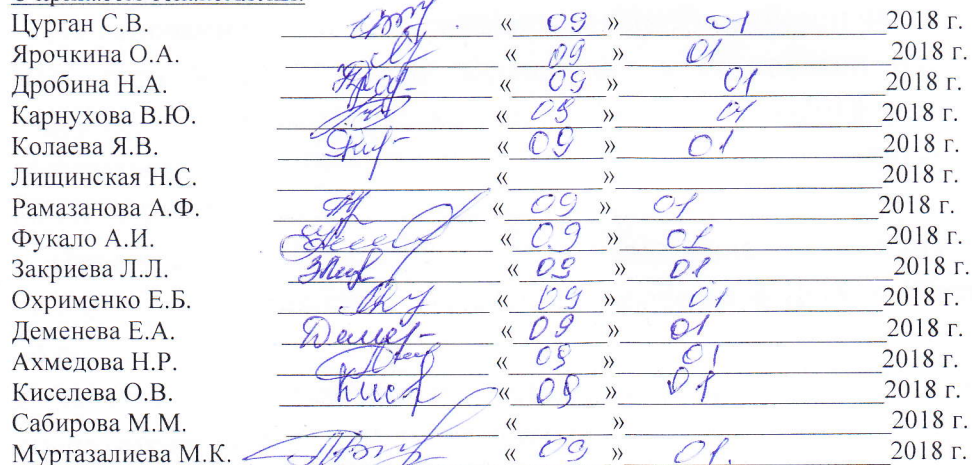 Цурган С.В. « 09 » 01 2018 г.
Ярочкина О.А. « 09 » 01 2018 г.
Дробина Н.А. « 09 » 01 2018 г.
Карнухова В.Ю. « 09 » 01 2018 г.
Колаева Я.В. « 09 » 01 2018 г.
Лищинская Н.С. « » 2018 г.
Рамазанова А.Ф. « 09 » 01 2018 г.
Фукало А.И. « 09 » 01 2018 г.
Закриева Л.Л. « 09 » 01 2018 г.
Охрименко Е.Б. « 09 » 01 2018 г.
Деменева Е.А. « 09 » 01 2018 г.
Ахмедова Н.Р. « 09 » 01 2018 г.
Киселева О.В. « 09 » 01 2018 г.
Сабирова М.М. « » 2018 г.
Муртазалиева М.К. « 09 » 01. 2018 г.